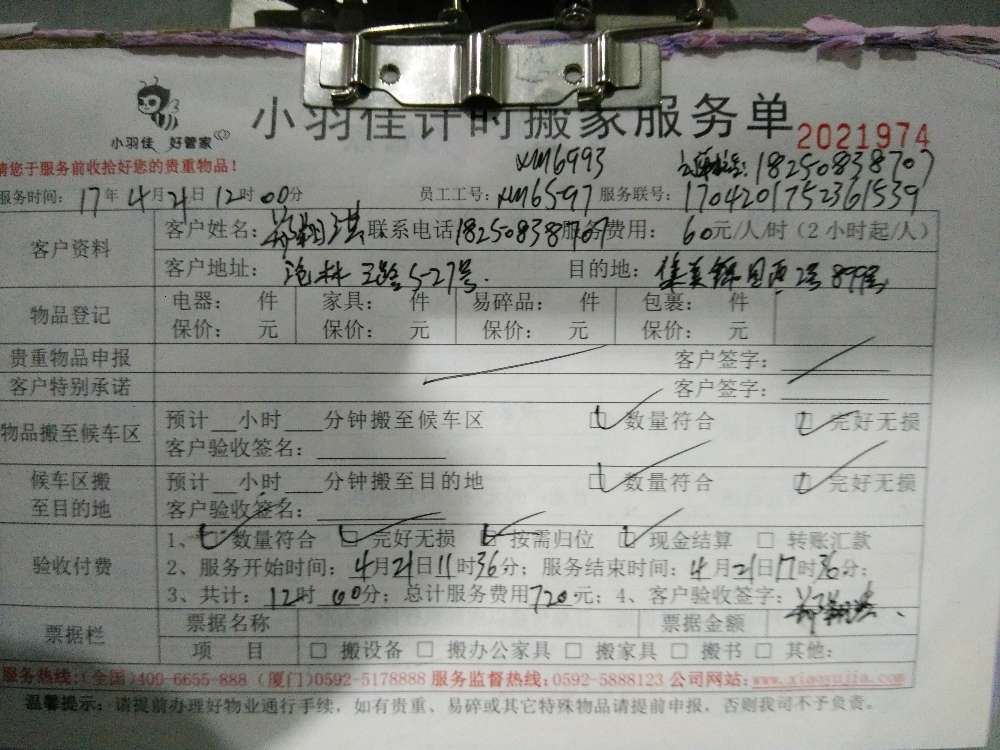 小羽佳计时搬家服务单
小羽佳 好管家
2021974
请您于服务前收拾好您的贵重物品！
XM6993
18250838707
服务时间：17年4月21日12时00分 员工工号：XM6597 服务联号：1704201752361539
客户资料 客户姓名： 联系电话18250838707服务费用：60元/人/时（2小时起/人）
客户地址： 5-27号. 目的地：集美 2号899
物品登记 电器： 件 家具： 件 易碎品： 件 包裹： 件
保价： 元 保价： 元 保价： 元 保价： 元
贵重物品申报 客户签字：
客户特别承诺 客户签字：
物品搬至候车区 预计__小时___分钟搬至候车区 □ 数量符合 □ 完好无损
客户验收签名：
候车区搬至目的地 预计__小时___分钟搬至目的地 □ 数量符合 □ 完好无损
客户验收签名：
验收付费 1、☑数量符合 ☑完好无损 ☑按需归位 ☑现金结算 □ 转账汇款
2、服务开始时间：4月21日11时36分；服务结束时间：4月21日17时36分；
3、共计：12时00分；总计服务费用720元；4、客户验收签字：
票据栏 票据名称 票据金额
项 目 □ 搬设备 □ 搬办公家具 □ 搬家具 □ 搬书 □ 其他：
服务热线：（全国）400-6655-888（厦门）0592-5178888 服务监督热线：0592-5888123 公司网站：www.xiaoyujia.com
温馨提示：请提前办理好物业通行手续，如有贵重、易碎或其它特殊物品请提前申报，否则我司不予负责。